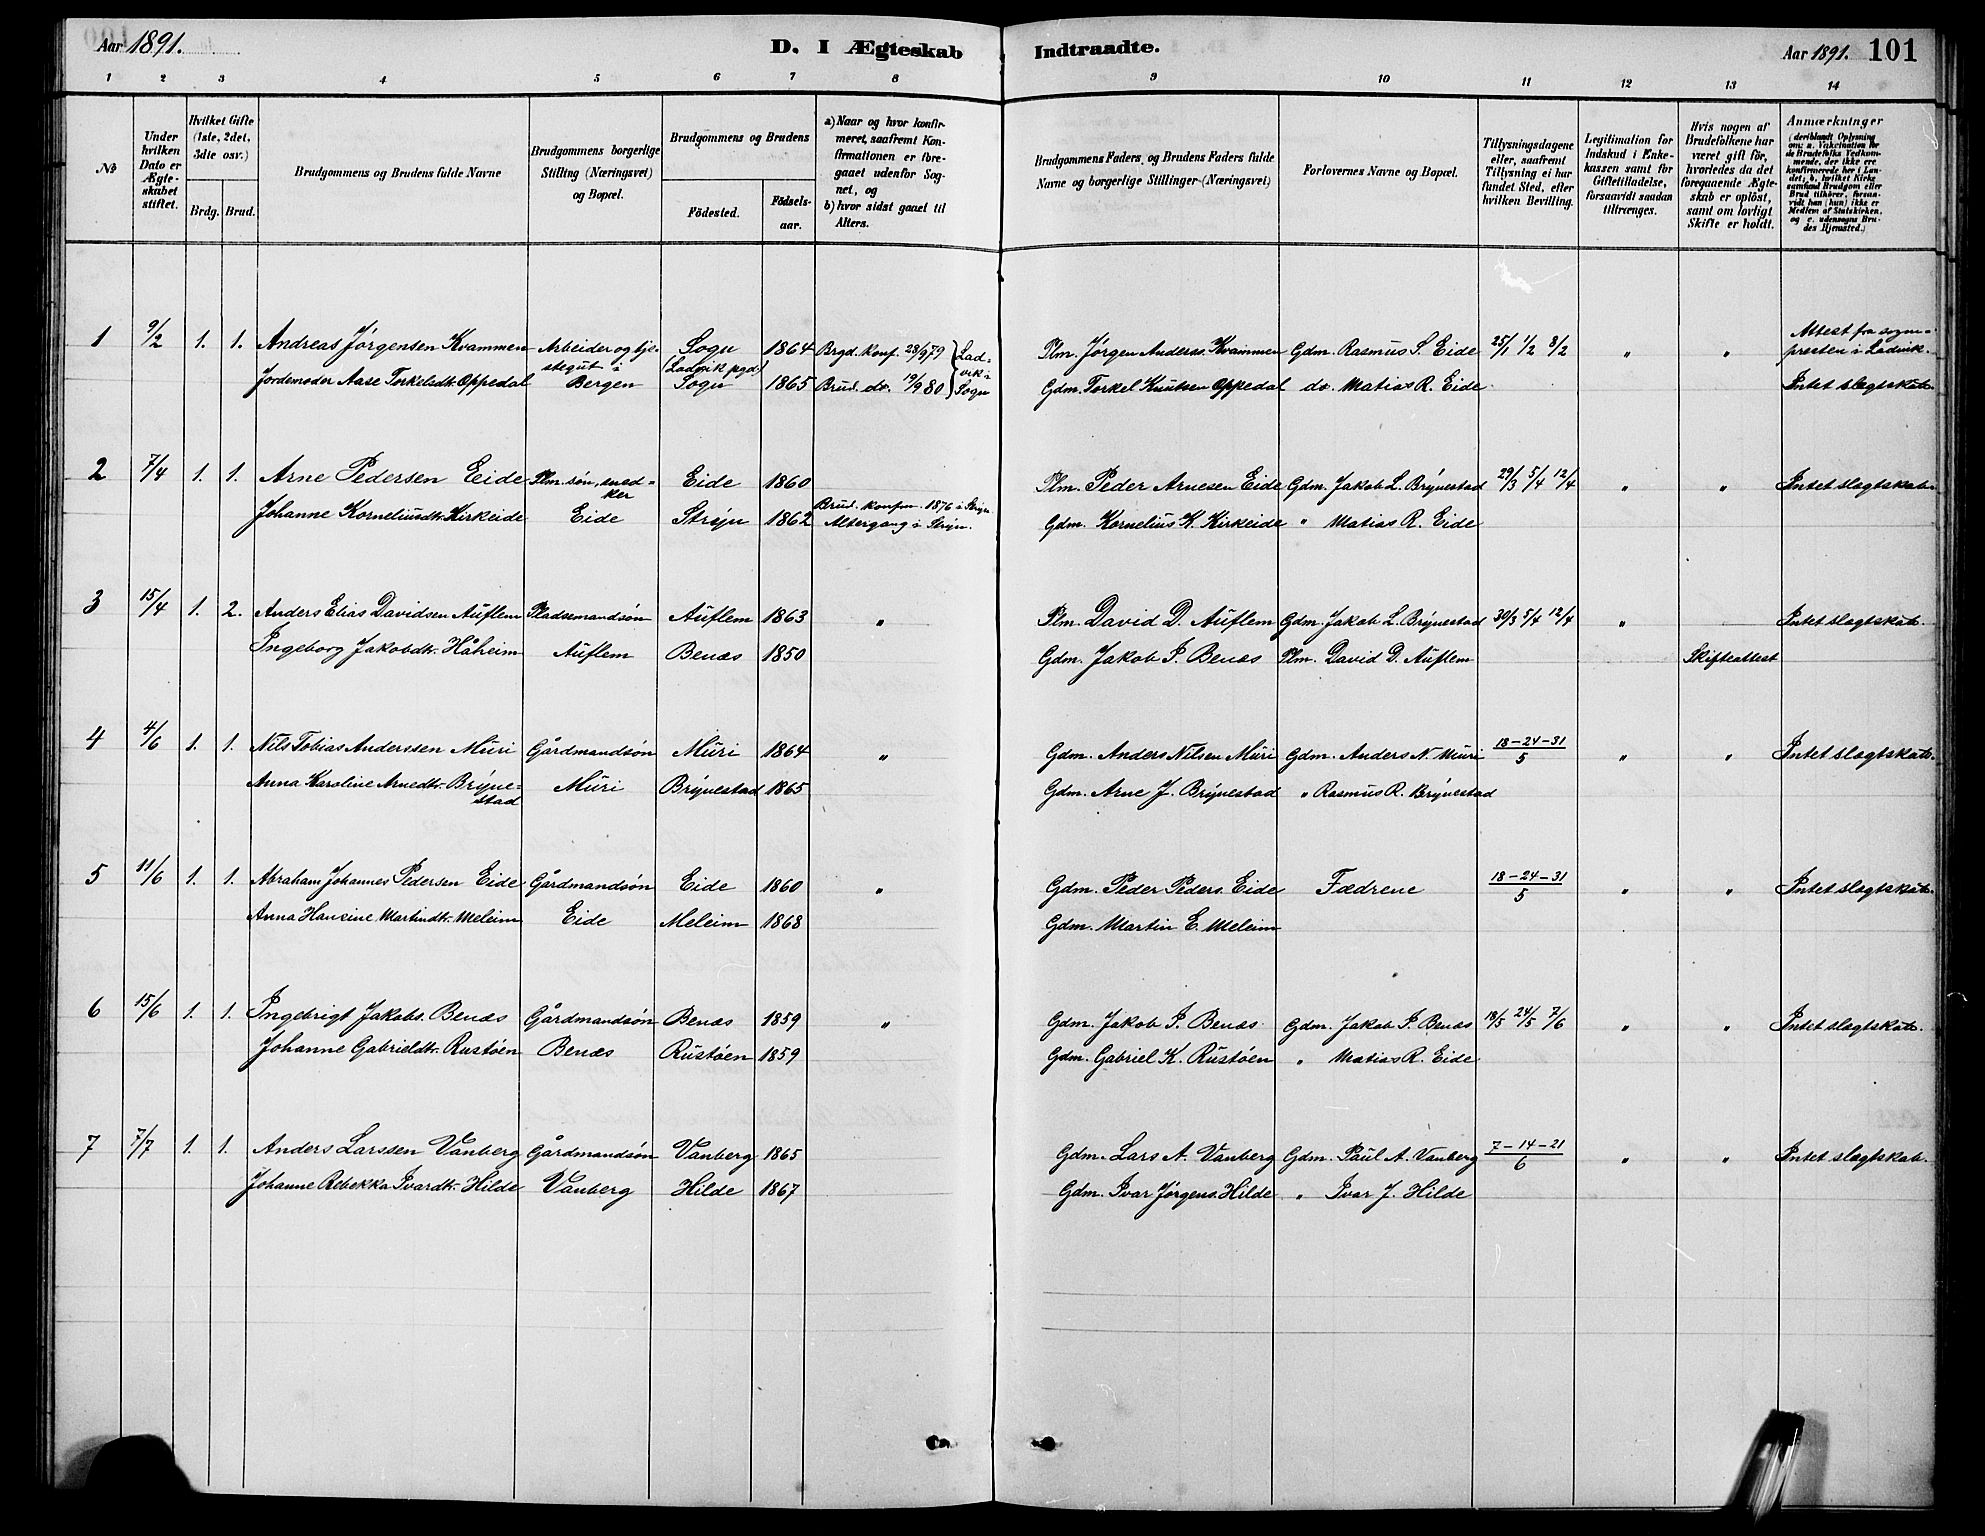 Aar 1891.
D. I Ægteskab Indtraadte.
Aar 1891. 101
1 2 3 4 5 6 7 8 9 10 11 12 13 14
No
Under hvilken Dato er Ægteskabet stiftet.
Hvilket Gifte (1ste, 2det, 3die osv.)
Brdg. Brud.
Brudgommens og Brudens fulde Navne
Brudgommens borgerlige Stilling (Næringsvei) og Bopæl.
Brudgommens og Brudens
Födested.
Födsels-aar.
a) Naar og hvor konfirmeret, saafremt Konfirmationen er foregaaet udenfor Sognet, og
b) hvor sidst gaaet til Alters.
Brudgommens Faders, og Brudens Faders fulde Navne og borgerlige Stillinger (Næringsvei)
Forlovernes Navne og Bopæl.
Tillysningsdagene eller, saafremt Tillysning ei har fundet Sted, efter hvilken Bevilling.
Legitimation for Indskud i Enkekassen samt for Giftetilladelse, forsaavidt saadan tiltrænges.
Hvis nogen af Brudefolkene har været gift för, hvorledes da det foregaaende Ægteskab er oplöst, samt om lovligt Skifte er holdt.
Anmærkninger
(deriblandt Oplysning om: a. Vakcination for de Brudefolks Vedkommende, der ikke ere konfirmerede her i Landet; b. hvilket Kirkesamfund Brudgom eller Brud tilhører, forsaavidt han (hun) ikke er Medlem af Statskirken, og c. udensogns Brudes Hjemsted.)
1 9/2 1. 1. Andreas Jørgensen Kvammen Arbeider og tjenestegut i Sogn (Ladvik pgd.) 1864 Brgd. konf. 28/9 79 } Ladvik i Sogn Plm. Jørgen Anderss. Kvammen Gdm. Rasmus S. Eide 25/1 1/2 8/2 " " Attest fra sognepresten i Ladvik.
Jordemoder Aase Torkeldtr. Oppedal Bergen Sogn 1865 Brud. do. 19/9 80 Gdm. Torkel Knutsen Oppedal do. Matias R. Eide Intet slægtskab.
2 7/4 1. 1. Arne Pedersen Eide Plm. søn, snedker Eide 1860 Plm. Peder Arnesen Eide Gdm. Jakob L. Brynestad 29/3 5/4 12/4 " " Intet slægtskab.
Johanne Korneliusdtr. Kirkeide Eide Stryn 1862 Brud. konfm. 1876 i Stryn. Altergang i Stryn. Gdm. Kornelius K. Kirkeide " Matias R. Eide
3 15/4 1. 2. Anders Elias Davidsen Auflem Pladsemandsøn Auflem 1863 " Plm. David D. Auflem Gdm. Jakob L. Brynestad 30/3 5/4 12/4 " Intet slægtskab.
Ingeborg Jakobdtr. Håheim Auflem Benæs 1850 Gdm. Jakob I. Benæs Plm. David D. Auflem Skifteattest
4 4/6 1. 1. Nils Tobias Anderssen Muri Gårdmandsøn Muri 1864 " Gdm. Anders Nilsen Muri Gdm. Anders N. Muri 18-24-31/5 " " Intet slægtskab.
Anna Karoline Arnedtr. Brynestad Muri Brynestad 1865 Gdm. Arne J. Brynestad " Rasmus R. Brynestad
5 11/6 1. 1. Abraham Johannes Pedersen Eide Gårdmandsøn Eide 1860 " Gdm. Peder Peders. Eide Fædrene 18-24-31/5 " " Intet slægtskab.
Anna Hansine Martindtr. Meleim Eide Meleim 1868 Gdm. Martin E. Meleim
6 15/6 1. 1. Ingebrigt Jakobs. Benæs Gårdmandsøn Benæs 1859 " Gdm. Jakob I. Benæs. Gdm. Jakob I. Benæs 18/5 24/5 7/6 " " Intet slægtskab.
Johanne Gabrieldtr. Rustøen Benæs Rustøen 1859 Gdm. Gabriel K. Rustøen " Matias R. Eide
7 7/7 1. 1. Anders Larssen Vanberg Gårdmandsøn Vanberg 1865 Gdm. Lars A. Vanberg Gdm. Paul A. Vanberg 7-14-21/6 " " Intet slægtskab.
Johanne Rebekka Ivardtr. Hilde Vanberg Hilde 1867 Gdm. Ivar Jørgens. Hilde " Ivar J. Hilde